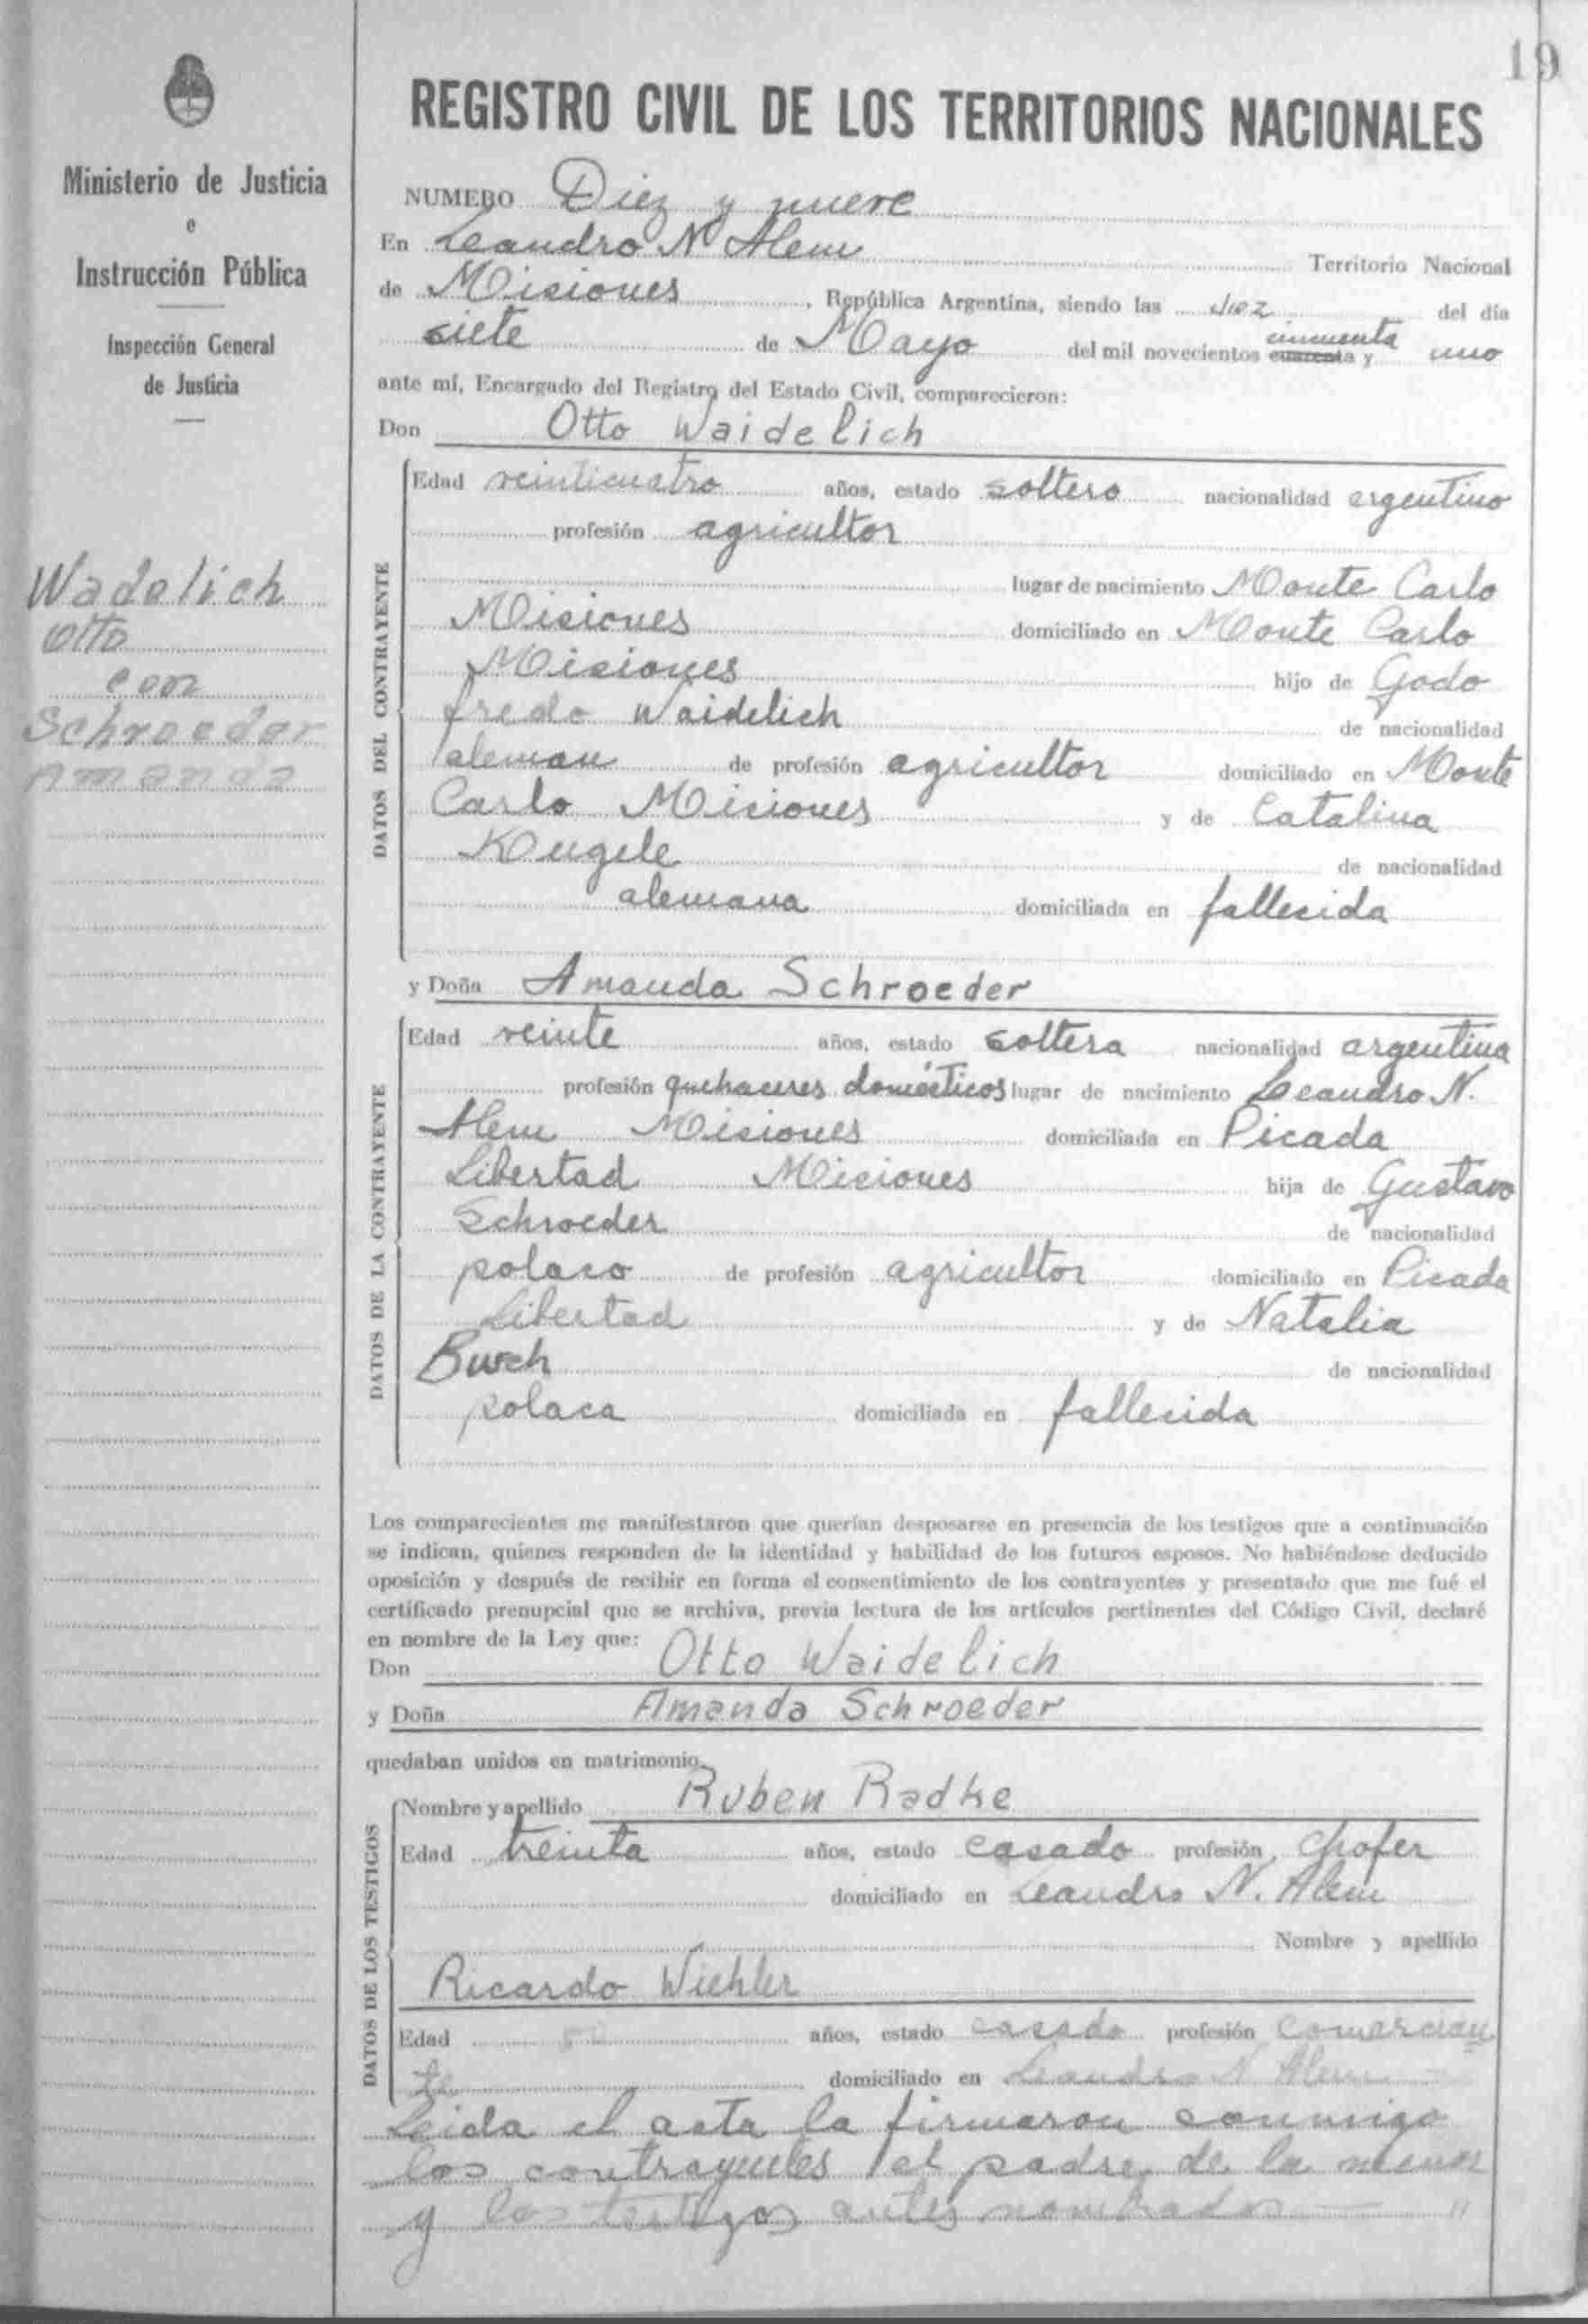 19
Ministerio de Justicia
e
Instrucción Pública
Inspección General
de Justicia
Wadelich
Otto
con
Schroeder
Amanda
REGISTRO CIVIL DE LOS TERRITORIOS NACIONALES
NUMERO Diez y nueve
En Leandro N Alem Territorio Nacional
de Misiones, República Argentina, siendo las diez del día
siete de Mayo del mil novecientos cuarenta cincuenta y uno
ante mí, Encargado del Registro del Estado Civil, comparecieron:
Don Otto Waidelich
DATOS DEL CONTRAYENTE
Edad veinticuatro años, estado soltero nacionalidad argentino
profesión agricultor
lugar de nacimiento Monte Carlo
Misiones domiciliado en Monte Carlo
Misiones hijo de Godo
fredo Waidelich de nacionalidad
aleman de profesión agricultor domiciliado en Monte
Carlo Misiones y de Catalina
Kugele de nacionalidad
alemana domiciliada en fallecida
y Doña Amanda Schroeder
DATOS DE LA CONTRAYENTE
Edad veinte años, estado soltera nacionalidad argentina
profesión quehaceres domésticos lugar de nacimiento Leandro N.
Alem Misiones domiciliada en Picada
Libertad Misiones hija de Gustavo
Schroeder de nacionalidad
polaco de profesión agricultor domiciliado en Picada
Libertad y de Natalia
Busch de nacionalidad
polaca domiciliada en fallecida
Los comparecientes me manifestaron que querían desposarse en presencia de los testigos que a continuación
se indican, quienes responden de la identidad y habilidad de los futuros esposos. No habiéndose deducido
oposición y después de recibir en forma el consentimiento de los contrayentes y presentado que me fué el
certificado prenupcial que se archiva, previa lectura de los artículos pertinentes del Código Civil, declaré
en nombre de la Ley que:
Don Otto Waidelich
y Doña Amanda Schroeder
quedaban unidos en matrimonio.
DATOS DE LOS TESTIGOS
Nombre y apellido Ruben Radke
Edad treinta años, estado casado profesión Chofer
domiciliado en Leandro N. Alem
Nombre y apellido
Ricardo Wiehler
Edad años, estado casado profesión Comercian
te domiciliado en Leandro N Alem
Leida el acta la firmaron conmigo
los contrayentes el padre de la menor
y los testigos antes nombrados